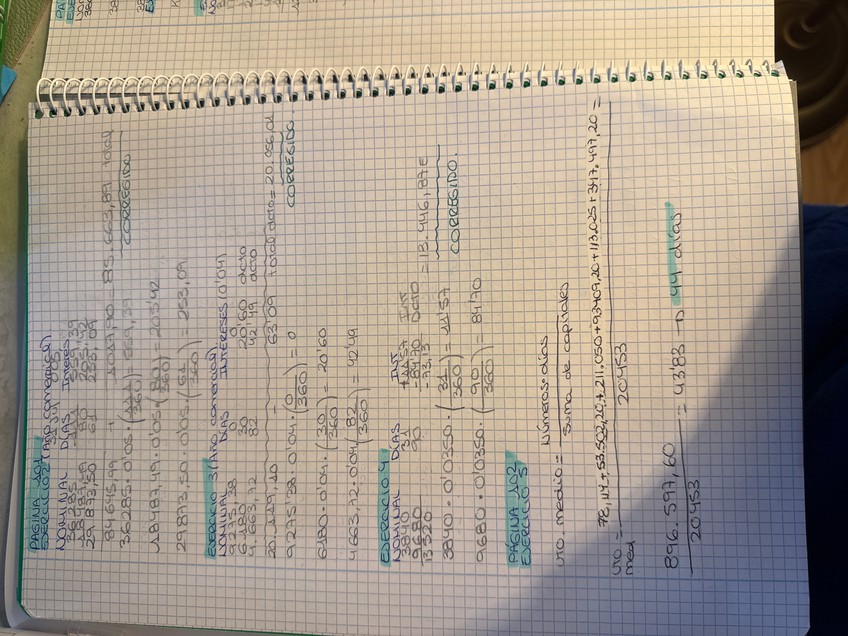 PÁGINA 101
EJERCICIO 2 (AÑO COMERCIAL)
NOMINAL DÍAS Intereses
36285 111 559,39
18487,49 80 205,42
29873,50 61 253,09
84645,99 + 1017,90 = 85.663,89 total
CORREGIDO
36285 · 0'05 · (111/360) = 559,39
18487,49 · 0'05 · (80/360) = 205,42
29873,50 · 0'05 · (61/360) = 253,09
EJERCICIO 3 (AÑO COMERCIAL)
NOMINAL DÍAS INTERESES (0'04)
9.275'38 0
6.180 30 20'60 dcto
4.663,72 82 42'49 dcto
20.119,10 - 63'09 total dcto = 20.056,01
CORREGIDO
9275'38 · 0'04 · (0/360) = 0
6180 · 0'04 · (30/360) = 20'60
4663,72 · 0'04 (82/360) = 42'49
EJERCICIO 4
NOMINAL DÍAS INT
3840 31 +11'57 INT
9680 90 -84'70 DCTO
13520 -73,13 = 13.446,87€
CORREGIDO.
3840 · 0'0350 · (31/360) = 11'57
9680 · 0'0350 · (90/360) = 84'70
PÁGINA 102
EJERCICIO 5
VTO. medio = Números · días / Suma de capitales
VTO med = 78,114 + 53.502,20 + 211.050 + 93409,20 + 113.025 + 347.497,20 / 20453 =
896.597,60 / 20453 = 43'83 → 44 días